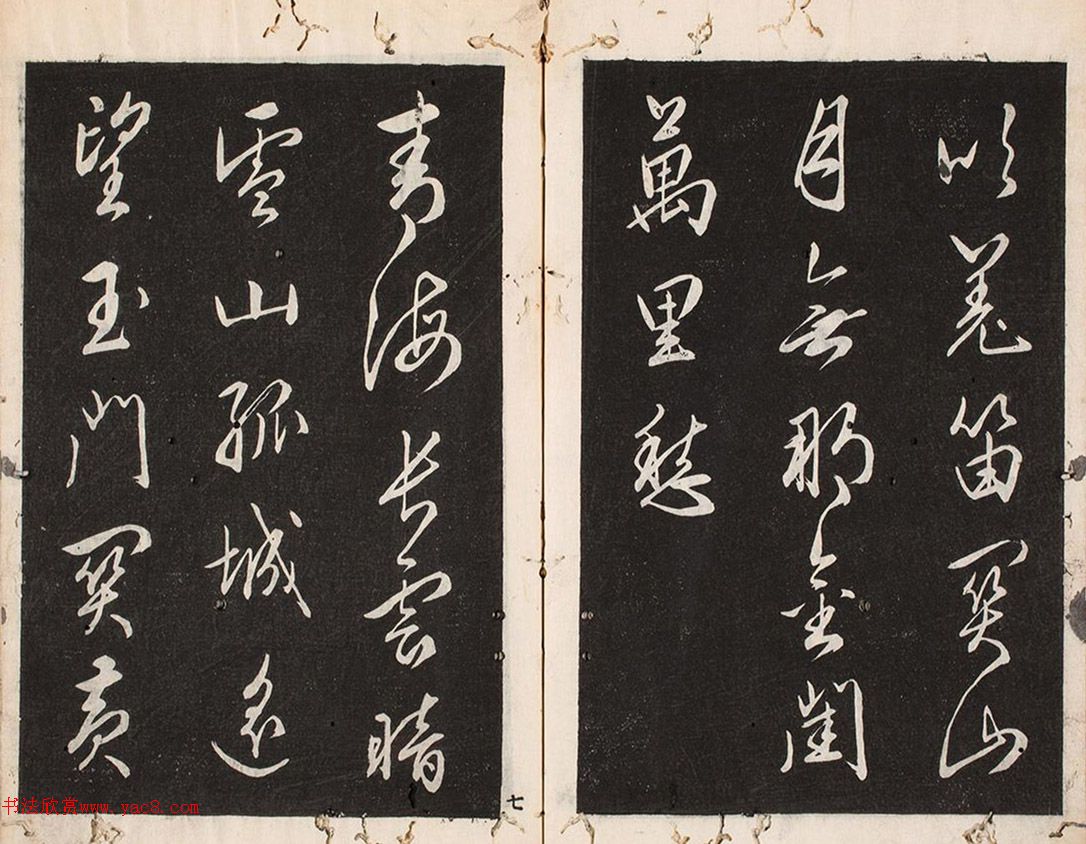 吹羌笛關山
月無那金閨
萬里愁
青海長雲暗
雪山孤城遙
望玉門關黃
七
书法欣赏www.yac8.com